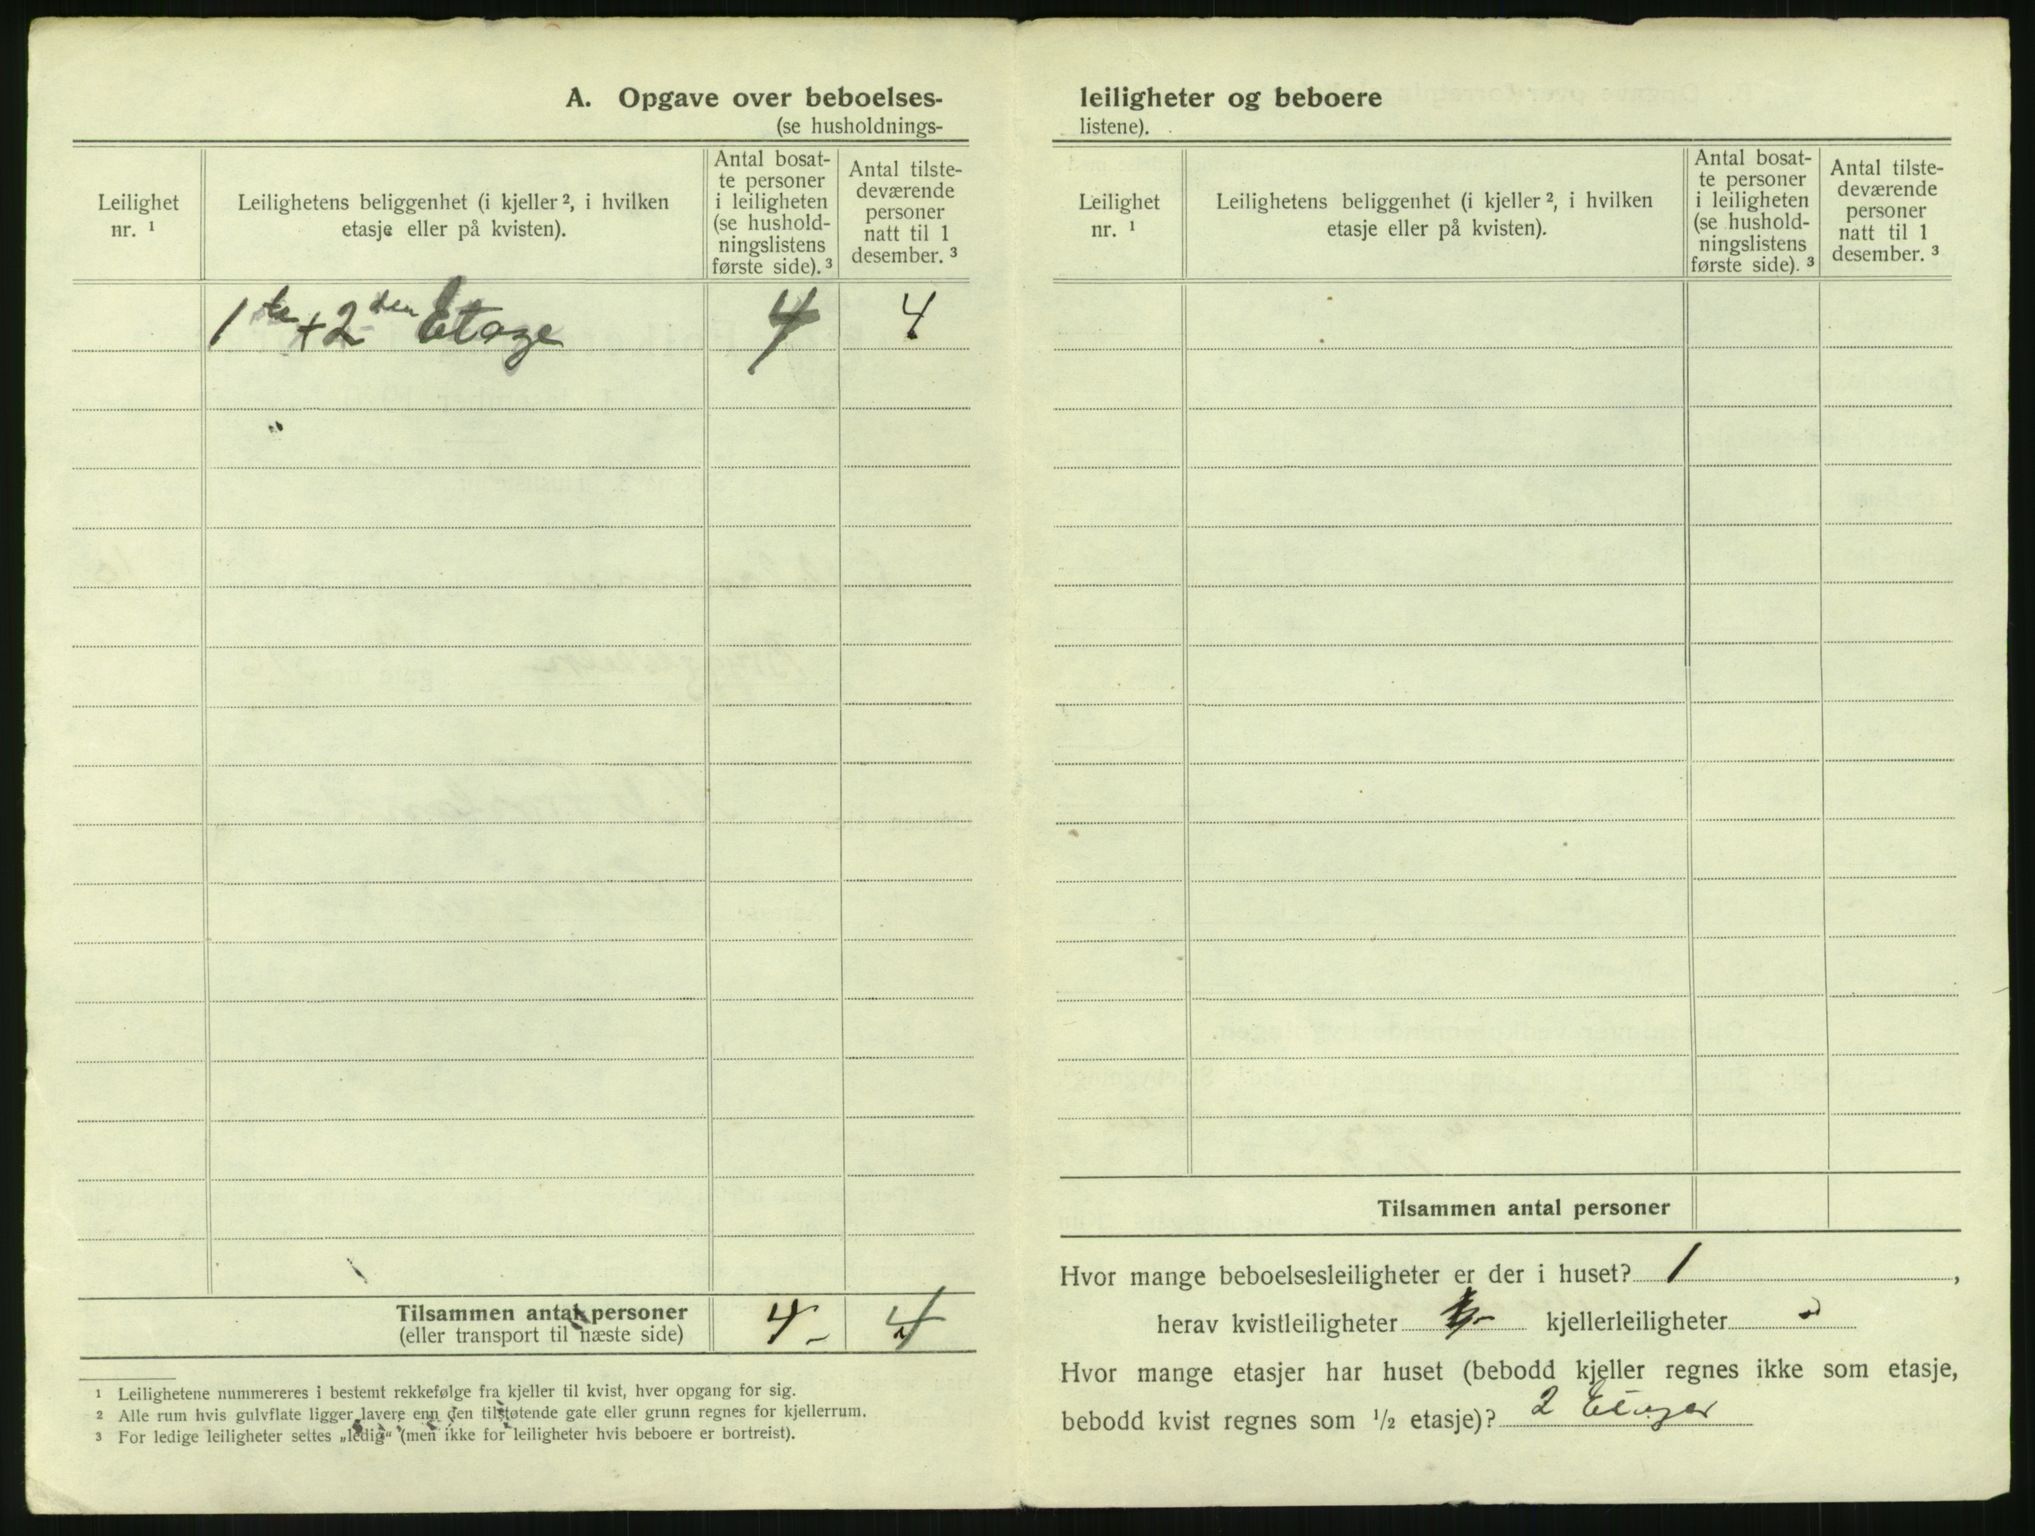 A. Opgave over beboelses-
(se husholdnings-
Leilighet
nr. ¹
Leilighetens beliggenhet (i kjeller ², i hvilken
etasje eller på kvisten).
Antal bosat-
te personer
i leiligheten
(se hushold-
ningslistens
første side). ³
Antal tilste-
deværende
personer
natt til 1
desember. ³
1ste + 2den Etage 4 4
Tilsammen antal personer 4 - 4
(eller transport til næste side)
¹ Leilighetene nummereres i bestemt rekkefølge fra kjeller til kvist, hver opgang for sig.
² Alle rum hvis gulvflate ligger lavere enn den tilstøtende gate eller grunn regnes for kjellerrum.
³ For ledige leiligheter settes „ledig“ (men ikke for leiligheter hvis beboere er bortreist).
leiligheter og beboere
listene).
Leilighet
nr. ¹
Leilighetens beliggenhet (i kjeller ², i hvilken
etasje eller på kvisten).
Antal bosat-
te personer
i leiligheten
(se hushold-
ningslistens
første side). ³
Antal tilste-
deværende
personer
natt til 1
desember. ³
Tilsammen antal personer
Hvor mange beboelsesleiligheter er der i huset? 1 ,
herav kvistleiligheter kjellerleiligheter
Hvor mange etasjer har huset (bebodd kjeller regnes ikke som etasje,
bebodd kvist regnes som ½ etasje)? 2 Etager